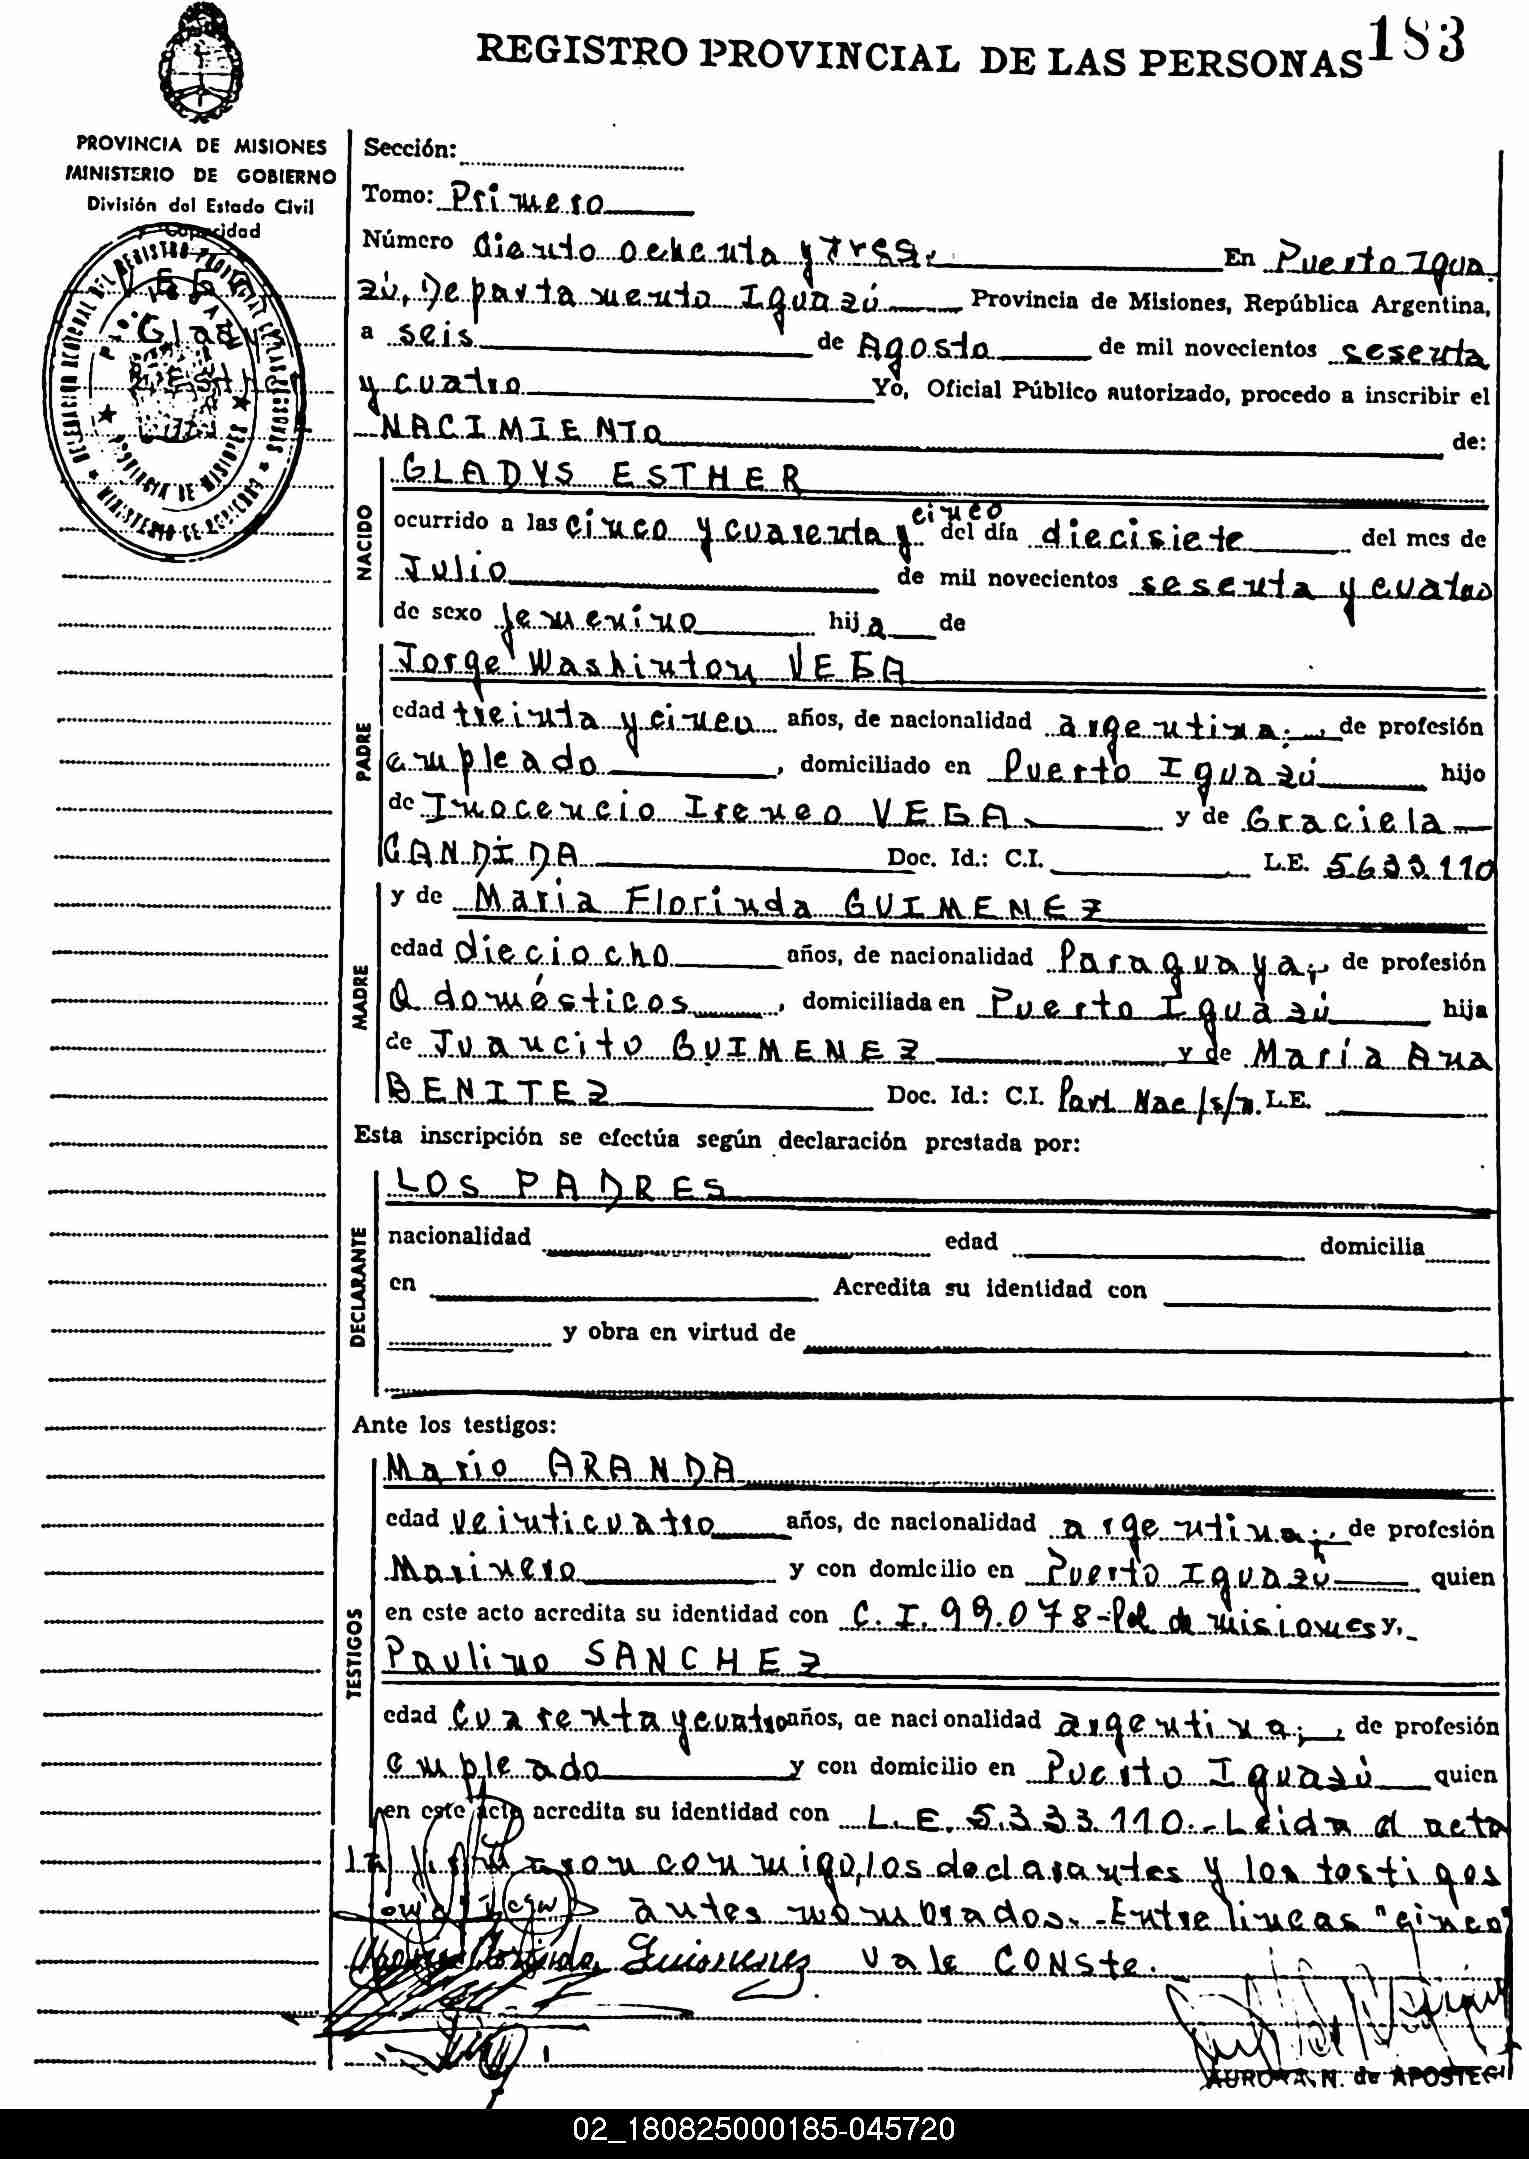 REGISTRO PROVINCIAL DE LAS PERSONAS 183
PROVINCIA DE MISIONES
MINISTERIO DE GOBIERNO
División del Estado Civil
y Capacidad
VEGA
Gladys
Sección:
Tomo: Primero
Número Ciento ochenta y tres. En Puerto Igua
zú, Departamento Iguazú Provincia de Misiones, República Argentina,
a seis de Agosto de mil novecientos sesenta
y cuatro Yo, Oficial Público autorizado, procedo a inscribir el
NACIMIENTO de:
NACIDO
GLADYS ESTHER
ocurrido a las cinco y cuarenta y cinco del día diecisiete del mes de
Julio de mil novecientos sesenta y cuatro
de sexo femenino hija de
PADRE
Jorge Washinton VEGA
edad treinta y cinco años, de nacionalidad argentina; de profesión
empleado, domiciliado en Puerto Iguazú hijo
de Inocencio Ireneo VEGA y de Graciela
CANDIDA Doc. Id.: C.I. L.E. 5633.110
MADRE
y de Maria Florinda GUIMENEZ
edad dieciocho años, de nacionalidad Paraguaya; de profesión
Q domésticos, domiciliada en Puerto Iguazú hija
de Juancito GUIMENEZ y de María Ana
BENITEZ Doc. Id.: C.I. Part. Nac/s/n. L.E.
Esta inscripción se efectúa según declaración prestada por:
DECLARANTE
LOS PADRES
nacionalidad edad domicilia
en Acredita su identidad con
y obra en virtud de
Ante los testigos:
TESTIGOS
Mario ARANDA
edad veinticuatro años, de nacionalidad argentina; de profesión
Marinero y con domicilio en Puerto Iguazú quien
en este acto acredita su identidad con C. I. 99.078-Pol de misiones y.
Paulino SANCHEZ
edad Cuarenta y cuatro años, de nacionalidad argentina; de profesión
empleado y con domicilio en Puerto Iguazú quien
en este acto acredita su identidad con L.E. 5.333.110.- Leida el acta
la firmaron conmigo, los declarantes y los testigos
antes nombrados.- Entre lineas "cinco"
Vale CONSte.
Florinda Guimenez
AURORA N. de APOSTEGUI
02_180825000185-045720